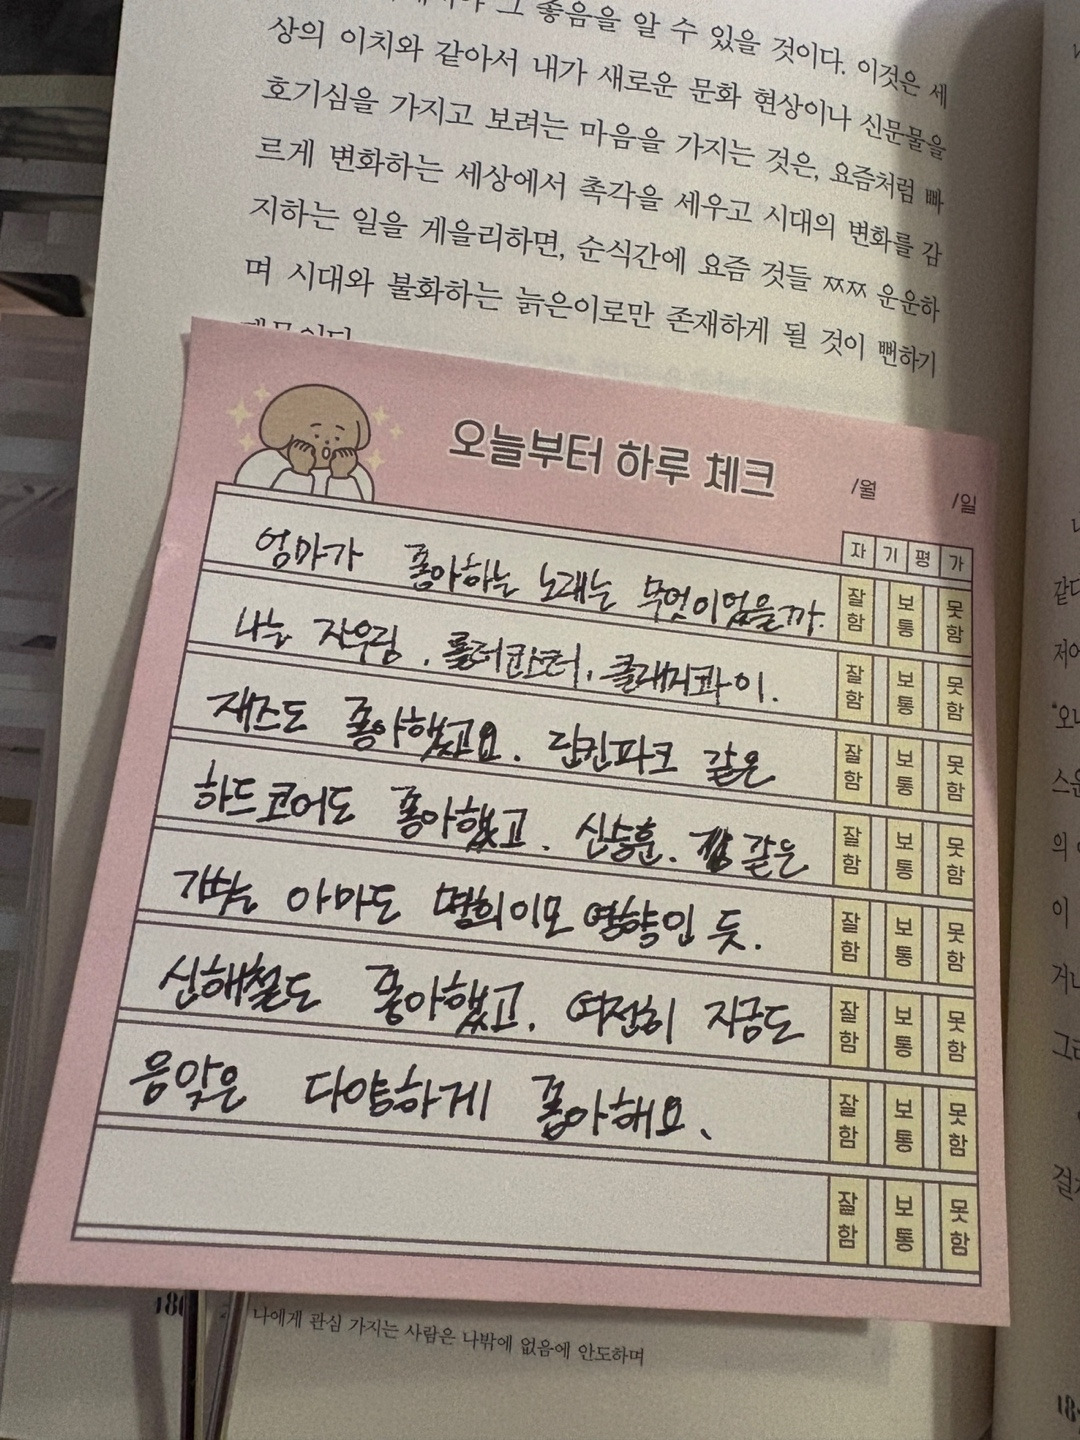 그 좋음을 알 수 있을 것이다. 이것은 세
상의 이치와 같아서 내가 새로운 문화 현상이나 신문물을
호기심을 가지고 보려는 마음을 가지는 것은, 요즘처럼 빠
르게 변화하는 세상에서 촉각을 세우고 시대의 변화를 감
지하는 일을 게을리하면, 순식간에 요즘 것들 ㅉㅉ 운운하
며 시대와 불화하는 늙은이로만 존재하게 될 것이 뻔하기
때문이다.
오늘부터 하루 체크 /월 /일
자 기 평 가
엄마가 좋아하는 노래는 무엇이었을까.
잘함 보통 못함
나는 자우림, 롤러코스터, 클래지콰이.
잘함 보통 못함
재즈도 좋아했고요. 린킨파크 같은
잘함 보통 못함
하드코어도 좋아했고. 신승훈. 같은
잘함 보통 못함
가수는 아마도 명희이모 영향인 듯.
잘함 보통 못함
신해철도 좋아했고. 여전히 지금도
잘함 보통 못함
음악은 다양하게 좋아해요.
잘함 보통 못함
잘함 보통 못함
나에게 관심 가지는 사람은 나밖에 없음에 안도하며
같다
저어
"오니
스운
의
이
거나
그리